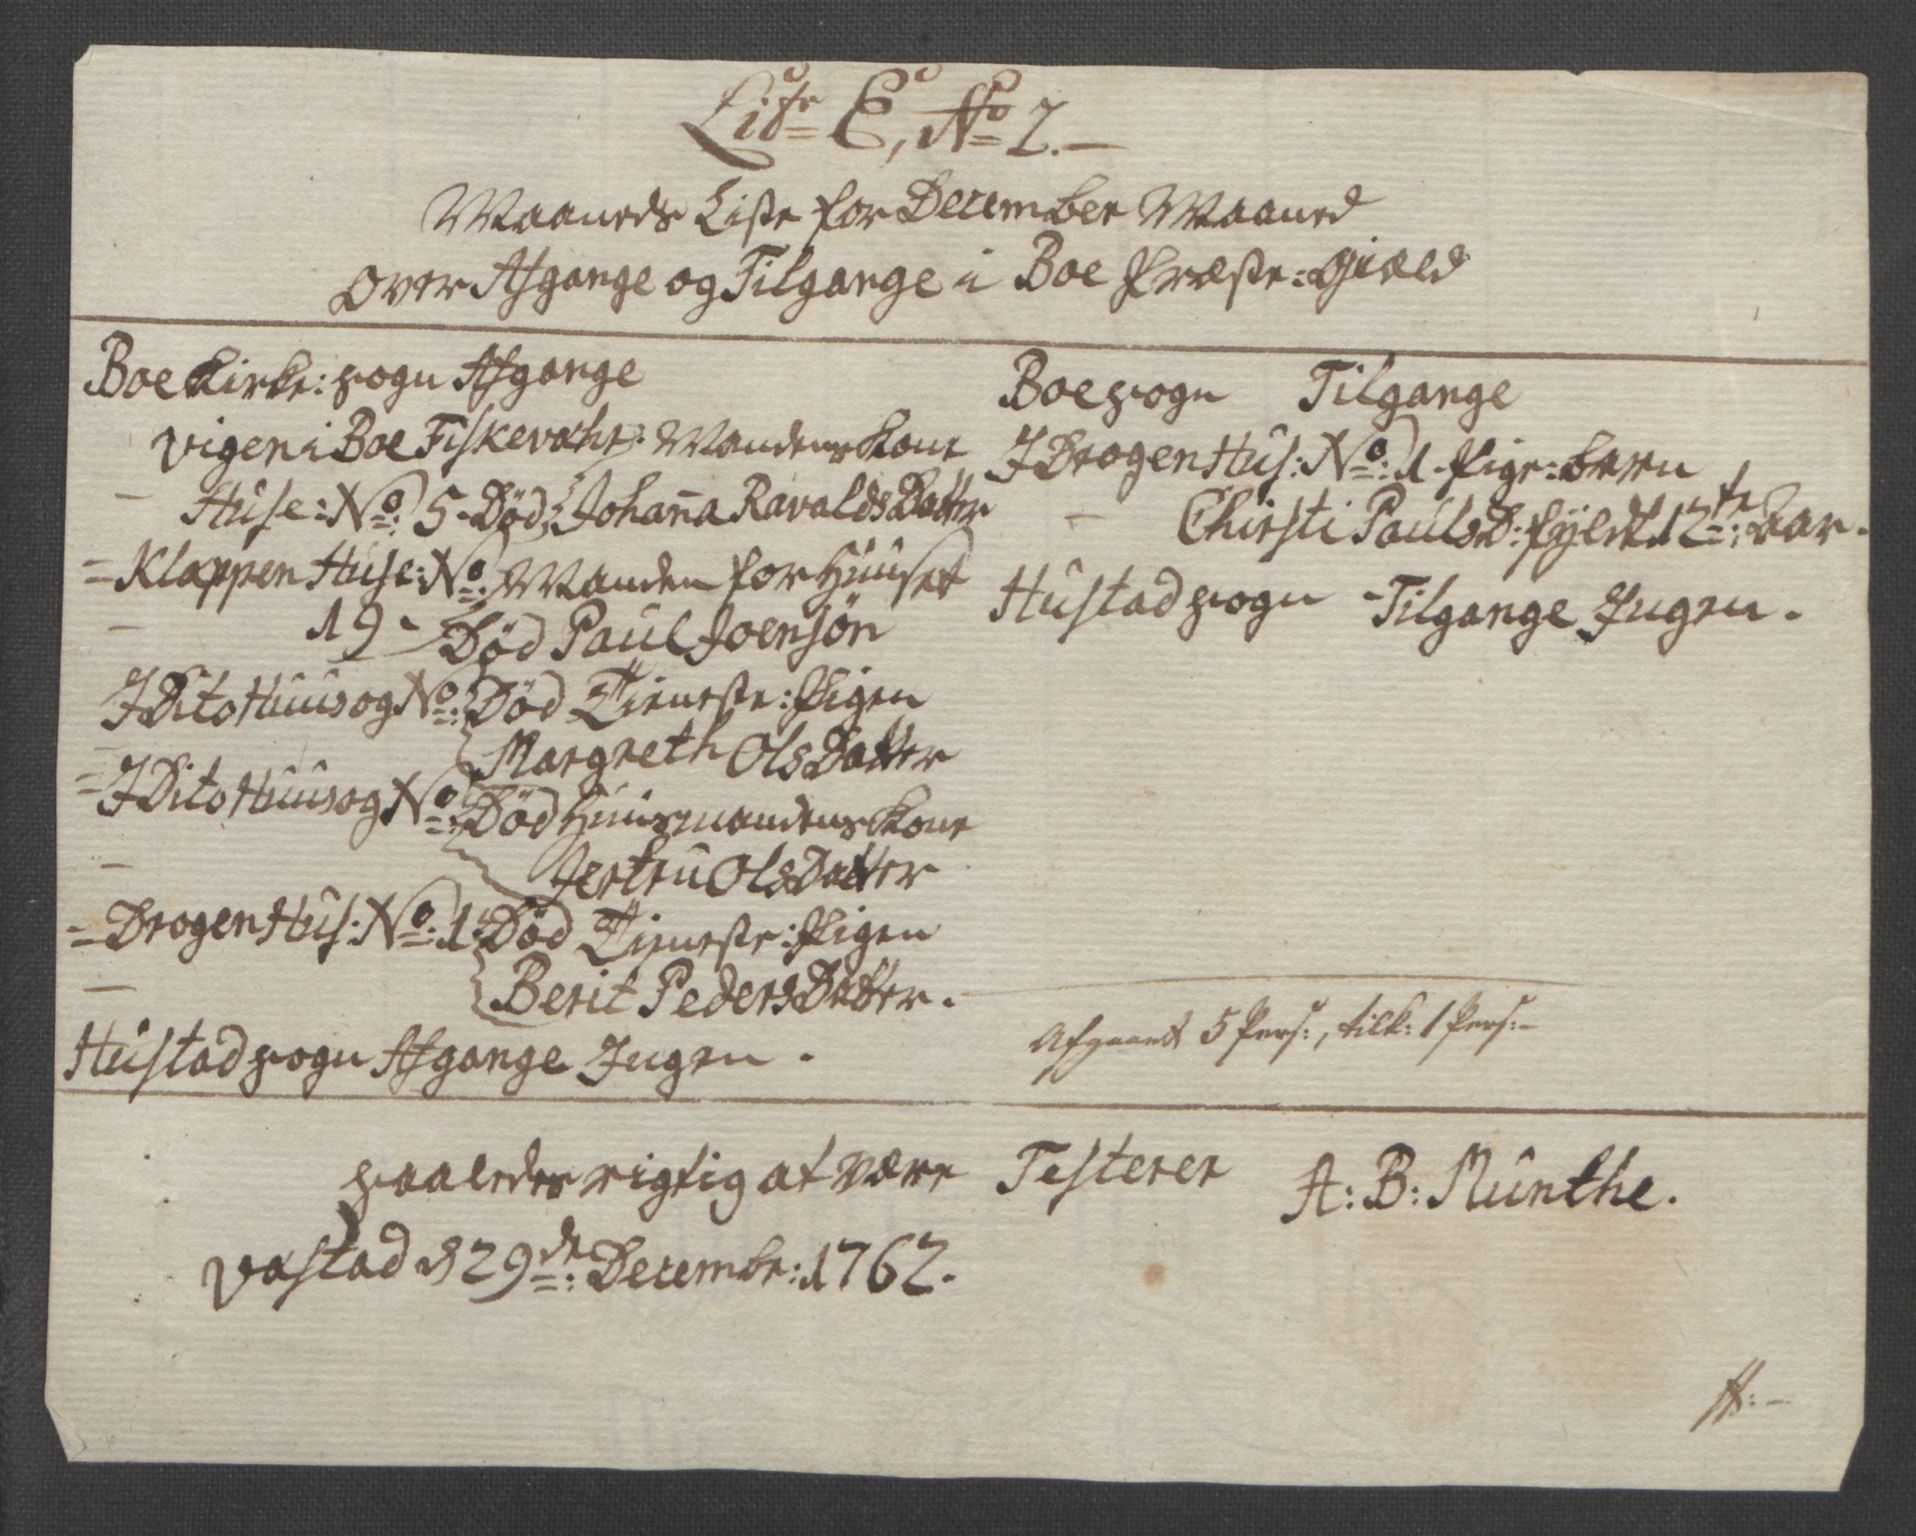 Lit: E, No 2.
Maaneds Liste for December Maaned
Over Afgange og Tilgange i Boe Præste-Gield
Boe Kirke: sogn Afgange
Vigen i Boe Fiskevahr: Mandens Kone
Huse: No: 5 - Død, Johanna RavaldsDatter
= Klappen Huse: No: Manden for Huuset
19 - Død Paul Joensøn
I Dito Huus og No: Død Tieneste: Pigen
Margreth OlsDatter
= I Dito Huus og No: Død Huusmandens Kone
Jertru OlsDatter
= Drogen Hus: No: 1. Død Tieneste: Pigen
Berit PedersDatter.
Hustad sogn Afgange Ingen.
Boe sogn Tilgange
I Drogen Hus: No: 1 - Pige: barn
Chirsti PaulsD: fyldt 12te: Aar.
Hustad sogn Tilgange Ingen.
Afgaaet 5 Pers:, tilk: 1 Pers:-
saaledes rigtig at være Testerer A: B: Munthe.
Vastad d 29de: Decembr: 1762.